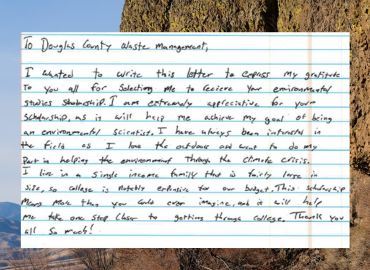 To Douglas County Waste Management,
I wanted to write this letter to express my gratitude
to you all for selecting me to recieve your environmental
studies scholarship. I am extremely appreciative for your
scholarship, as it will help me achieve my goal of being
an environmental scientist. I have always been interested in
the field as I love the outdoors and want to do my
part in helping the environment through the climate crisis.
I live in a single income family that is fairly large in
size, so college is notably expensive for our budget. This scholarship
means more than you could ever imagine, and it will help
me take one step closer to getting through college. Thank you
all so much!